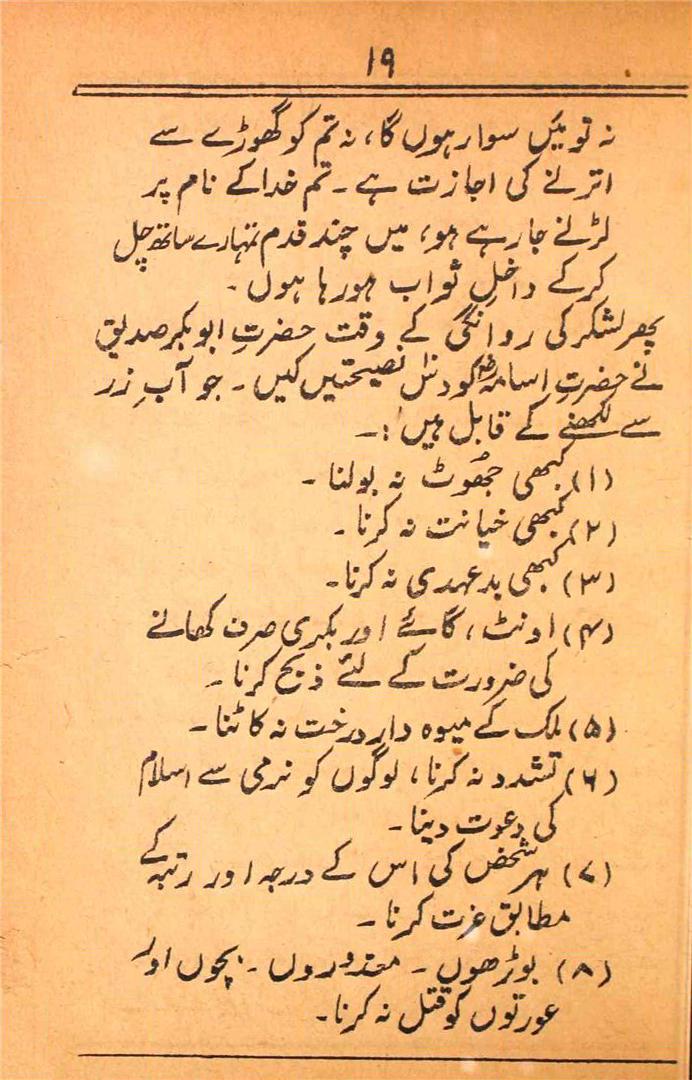 ۱۹
نہ تو میں سوار ہوں گا، نہ تم کو گھوڑے سے
اترنے کی اجازت ہے۔ تم خدا کے نام پر
لڑنے جا رہے ہو، میں چند قدم تمہارے ساتھ چل
کر کے داخلِ ثواب ہو رہا ہوں۔
پھر لشکر کی روانگی کے وقت حضرتِ ابوبکر صدیق
نے حضرتِ اسامہؓ کو دس نصیحتیں کیں۔ جو آبِ زر
سے لکھنے کے قابل ہیں :۔
(۱) کبھی جھُوٹ نہ بولنا۔
(۲) کبھی خیانت نہ کرنا۔
(۳) کبھی بدعہدی نہ کرنا۔
(۴) اونٹ، گائے اور بکری صرف کھانے
کی ضرورت کے لئے ذبح کرنا۔
(۵) ملک کے میوہ دار درخت نہ کاٹنا۔
(۶) تشدد نہ کرنا، لوگوں کو نرمی سے اسلام
کی دعوت دینا۔
(۷) ہر شخص کی اس کے درجہ اور رتبہ کے
مطابق عزت کرنا۔
(۸) بوڑھوں۔ معذوروں۔ بچوں اور
عورتوں کو قتل نہ کرنا۔